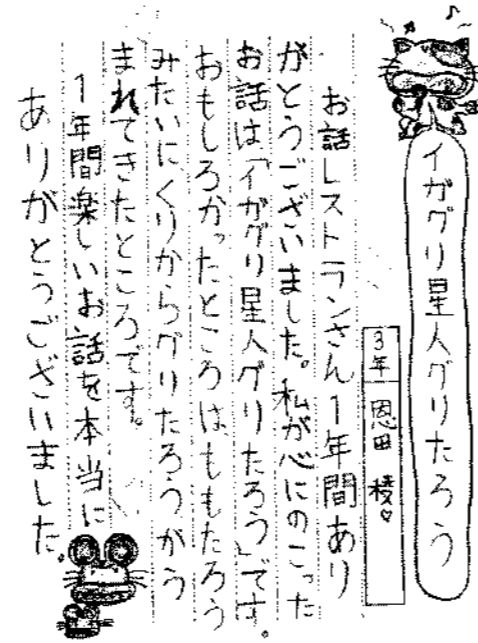 イガグリ星人グリたろう
3年 恩田 稜♡
お話レストランさん1年間あり
がとうございました。私が心にのこった
お話は「イガグリ星人グリたろう」です。
おもしろかったところは、ももたろう
みたいにくりからグリたろうがう
まれてきたところです。
1年間楽しいお話を本当に
ありがとうございました。